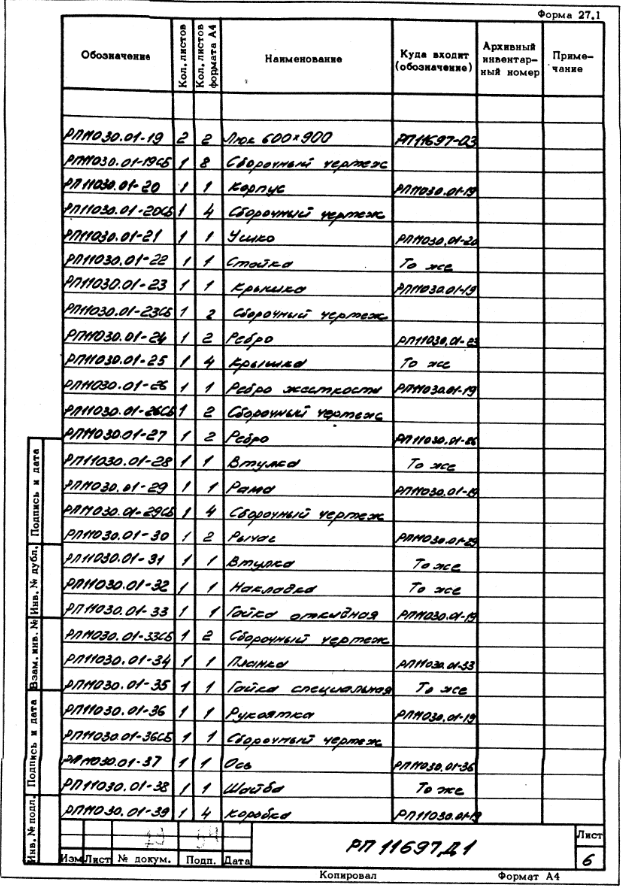 Форма 27.1
Обозначение Кол. листов Кол. листов формата А4 Наименование Куда входит (обозначение) Архивный инвентар-ный номер Приме-чание
РП11030.01-19 2 2 Люк 600×900 РП11697-03
РП11030.01-19СБ 1 8 Сборочный чертеж
РП11030.01-20 1 1 Корпус РП11030.01-19
РП11030.01-20СБ 1 4 Сборочный чертеж
РП11030.01-21 1 1 Ушко РП11030.01-20
РП11030.01-22 1 1 Стойка То же
РП11030.01-23 1 1 Крышка РП11030.01-19
РП11030.01-23СБ 1 2 Сборочный чертеж
РП11030.01-24 1 2 Ребро РП11030.01-23
РП11030.01-25 1 4 Крышка То же
РП11030.01-26 1 1 Ребро жесткости РП11030.01-19
РП11030.01-26СБ 1 2 Сборочный чертеж
РП11030.01-27 1 2 Ребро РП11030.01-26
РП11030.01-28 1 1 Втулка То же
РП11030.01-29 1 1 Рама РП11030.01-19
РП11030.01-29СБ 1 4 Сборочный чертеж
РП11030.01-30 1 2 Рычаг РП11030.01-29
РП11030.01-31 1 1 Втулка То же
РП11030.01-32 1 1 Накладка То же
РП11030.01-33 1 1 Гайка откидная РП11030.01-19
РП11030.01-33СБ 1 2 Сборочный чертеж
РП11030.01-34 1 1 Планка РП11030.01-33
РП11030.01-35 1 1 Гайка специальная То же
РП11030.01-36 1 1 Рукоятка РП11030.01-19
РП11030.01-36СБ 1 1 Сборочный чертеж
РП11030.01-37 1 1 Ось РП11030.01-36
РП11030.01-38 1 1 Шайба То же
РП11030.01-39 1 4 Коробка РП11030.01-19
Подпись и дата
Инв. № дубл.
Взам. инв. №
Подпись и дата
Инв. № подл.
Изм Лист № докум. Подп. Дата
РП 11697,Д1
Лист
6
Копировал Формат А4